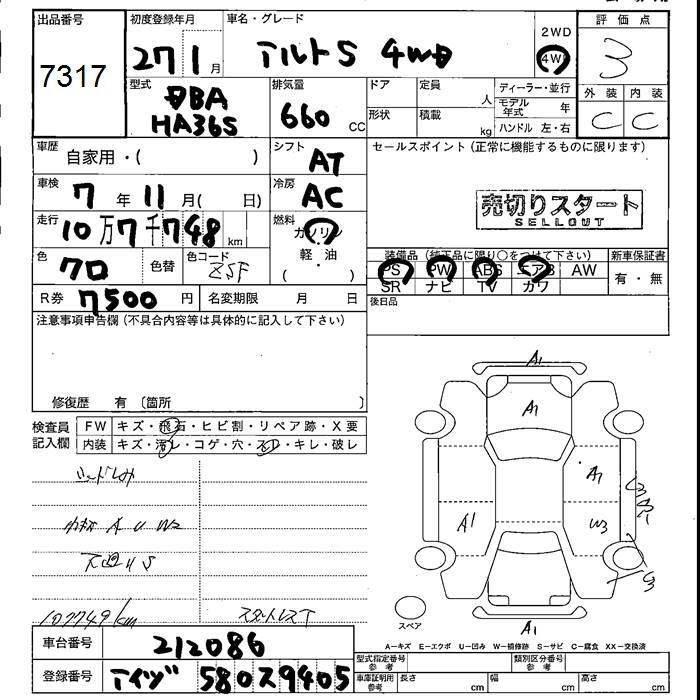 出品番号
7317
初度登録年月
27 1 月
車名・グレード
アルトS 4WD
2WD
4W
評価点
3
外装 内装
C C
型式
DBA
HA36S
排気量
660 CC
ドア
形状
定員 人
積載 kg
ディーラー・並行
モデル年式 年
ハンドル 左・右
車歴 自家用・( )
シフト AT
セールスポイント(正常に機能するものに限ります)
車検 7 年 11 月( 日)
冷房 AC
売切りスタート
SELLOUT
走行 10万7千748 km
燃料 ガソリン
軽・油
( )
色 クロ
色替
色コード ZSF
装備品(純正品に限り○をつけて下さい)
新車保証書
PS PW ABS エアB AW
SR ナビ TV カワ
有・無
R券 7500 円
名変期限 月 日
後日品
注意事項申告欄(不具合内容等は具体的に記入して下さい)
修復歴 有 〔箇所 〕
検査員記入欄
FW キズ・飛石・ヒビ割・リペア跡・X要
内装 キズ・汚レ・コゲ・穴・スレ・キレ・破レ
A1
A1
A1
A1
W3
A1
スペア
107749km
A-キズ E-エクボ U-凹み W-補修跡 S-サビ C-腐食 XX-交換済
車台番号 212086
型式指定番号 参考
類別区分番号 参考
登録番号 アイヅ 580ス9405
車庫証明用 参考
長さ cm
幅 cm
高さ cm